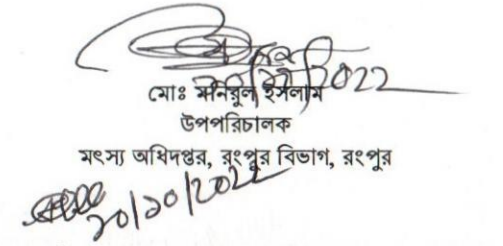 মোঃ মনিরুল ইসলাম
উপপরিচালক
মৎস্য অধিদপ্তর, রংপুর বিভাগ, রংপুর
২০/১০/২০২২